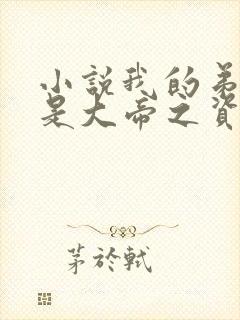 小說我的弟
是大帝之資
茅於軾